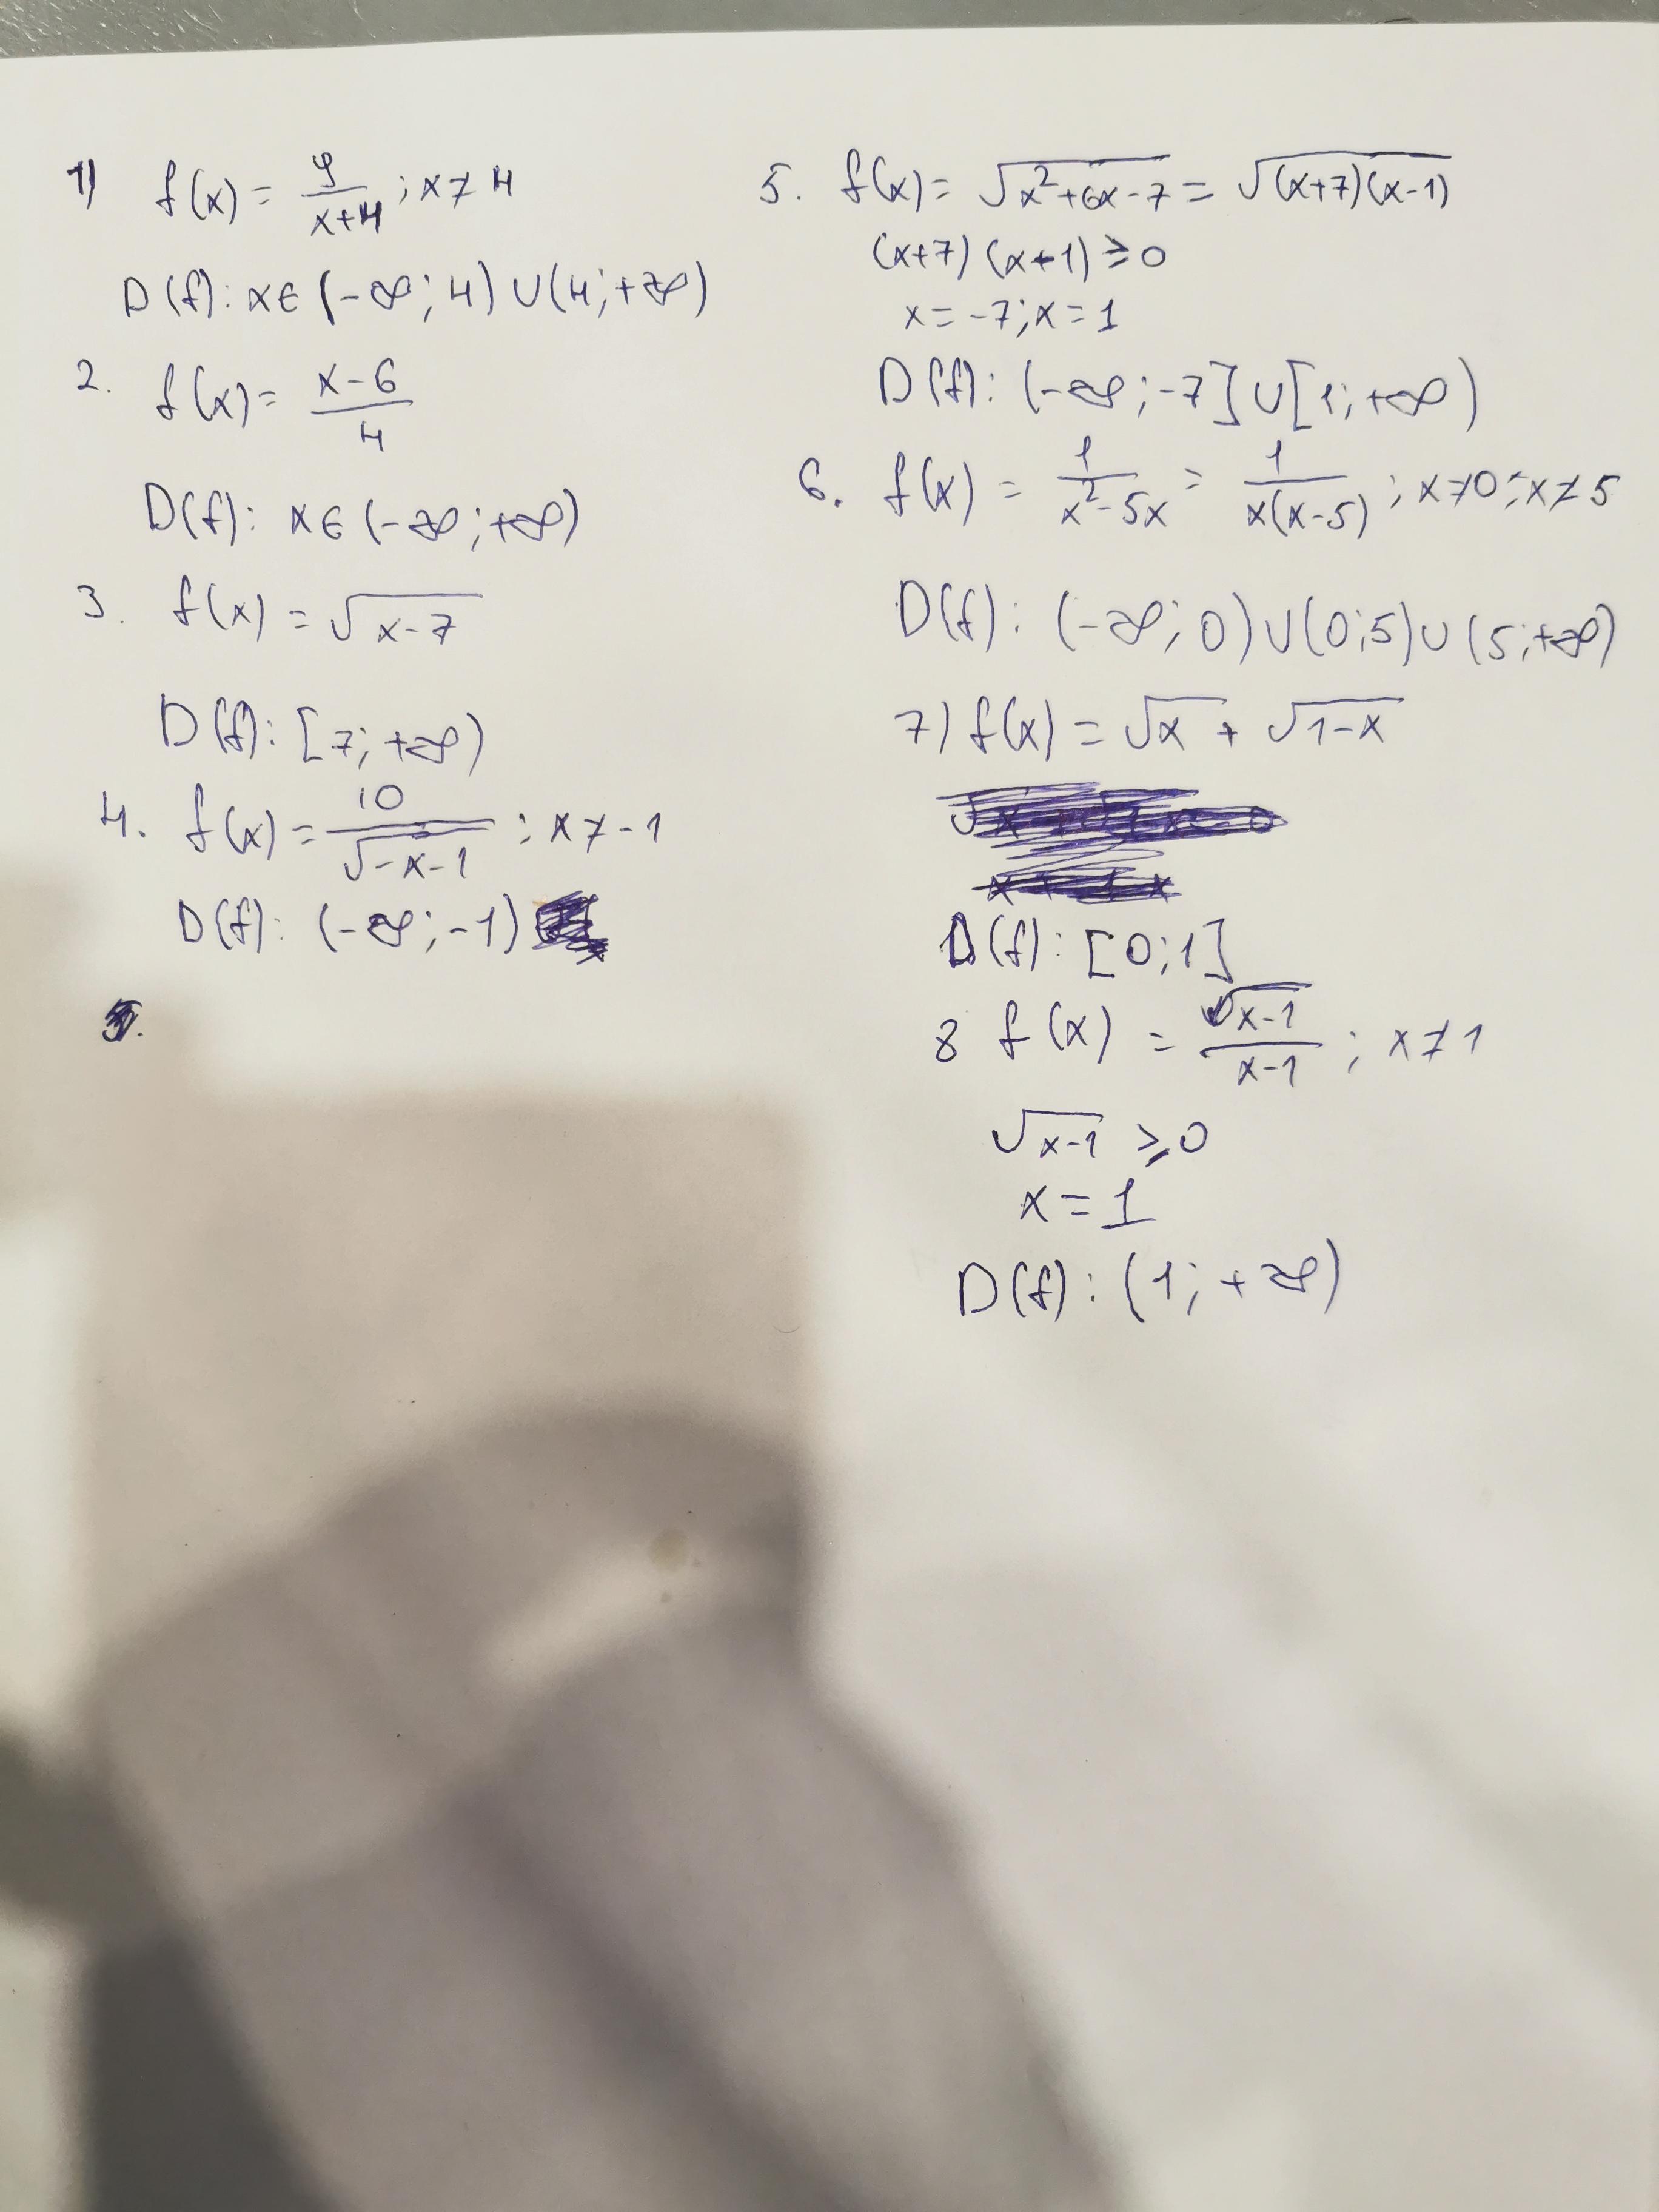 1) f(x) = 9/(x+4) ; x ≠ 4
D(f): x∈(-∞; 4) ∪ (4; +∞)
2. f(x) = (x-6)/4
D(f): x∈(-∞; +∞)
3. f(x) = √(x-7)
D(f): [7; +∞)
4. f(x) = 10/√(-x-1) ; x ≠ -1
D(f): (-∞; -1)
5. f(x) = √(x²+6x-7) = √((x+7)(x-1))
(x+7)(x-1) ≥ 0
x = -7; x = 1
D(f): (-∞; -7] ∪ [1; +∞)
6. f(x) = 1/(x²-5x) = 1/(x(x-5)) ; x ≠ 0; x ≠ 5
D(f): (-∞; 0) ∪ (0; 5) ∪ (5; +∞)
7) f(x) = √x + √(1-x)
D(f): [0; 1]
8 f(x) = √(x-1)/(x-1) ; x ≠ 1
√(x-1) ≥ 0
x = 1
D(f): (1; +∞)